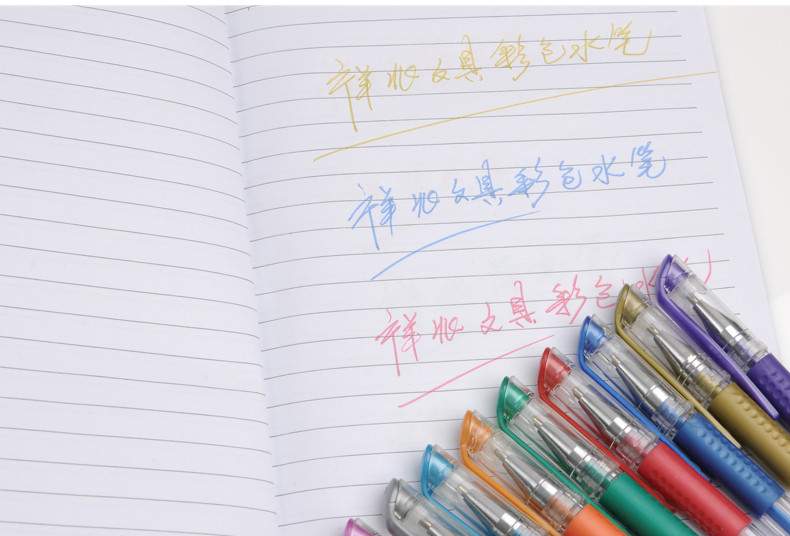 祥兆文具彩色水笔
祥兆文具彩色水笔
祥兆文具彩色水笔